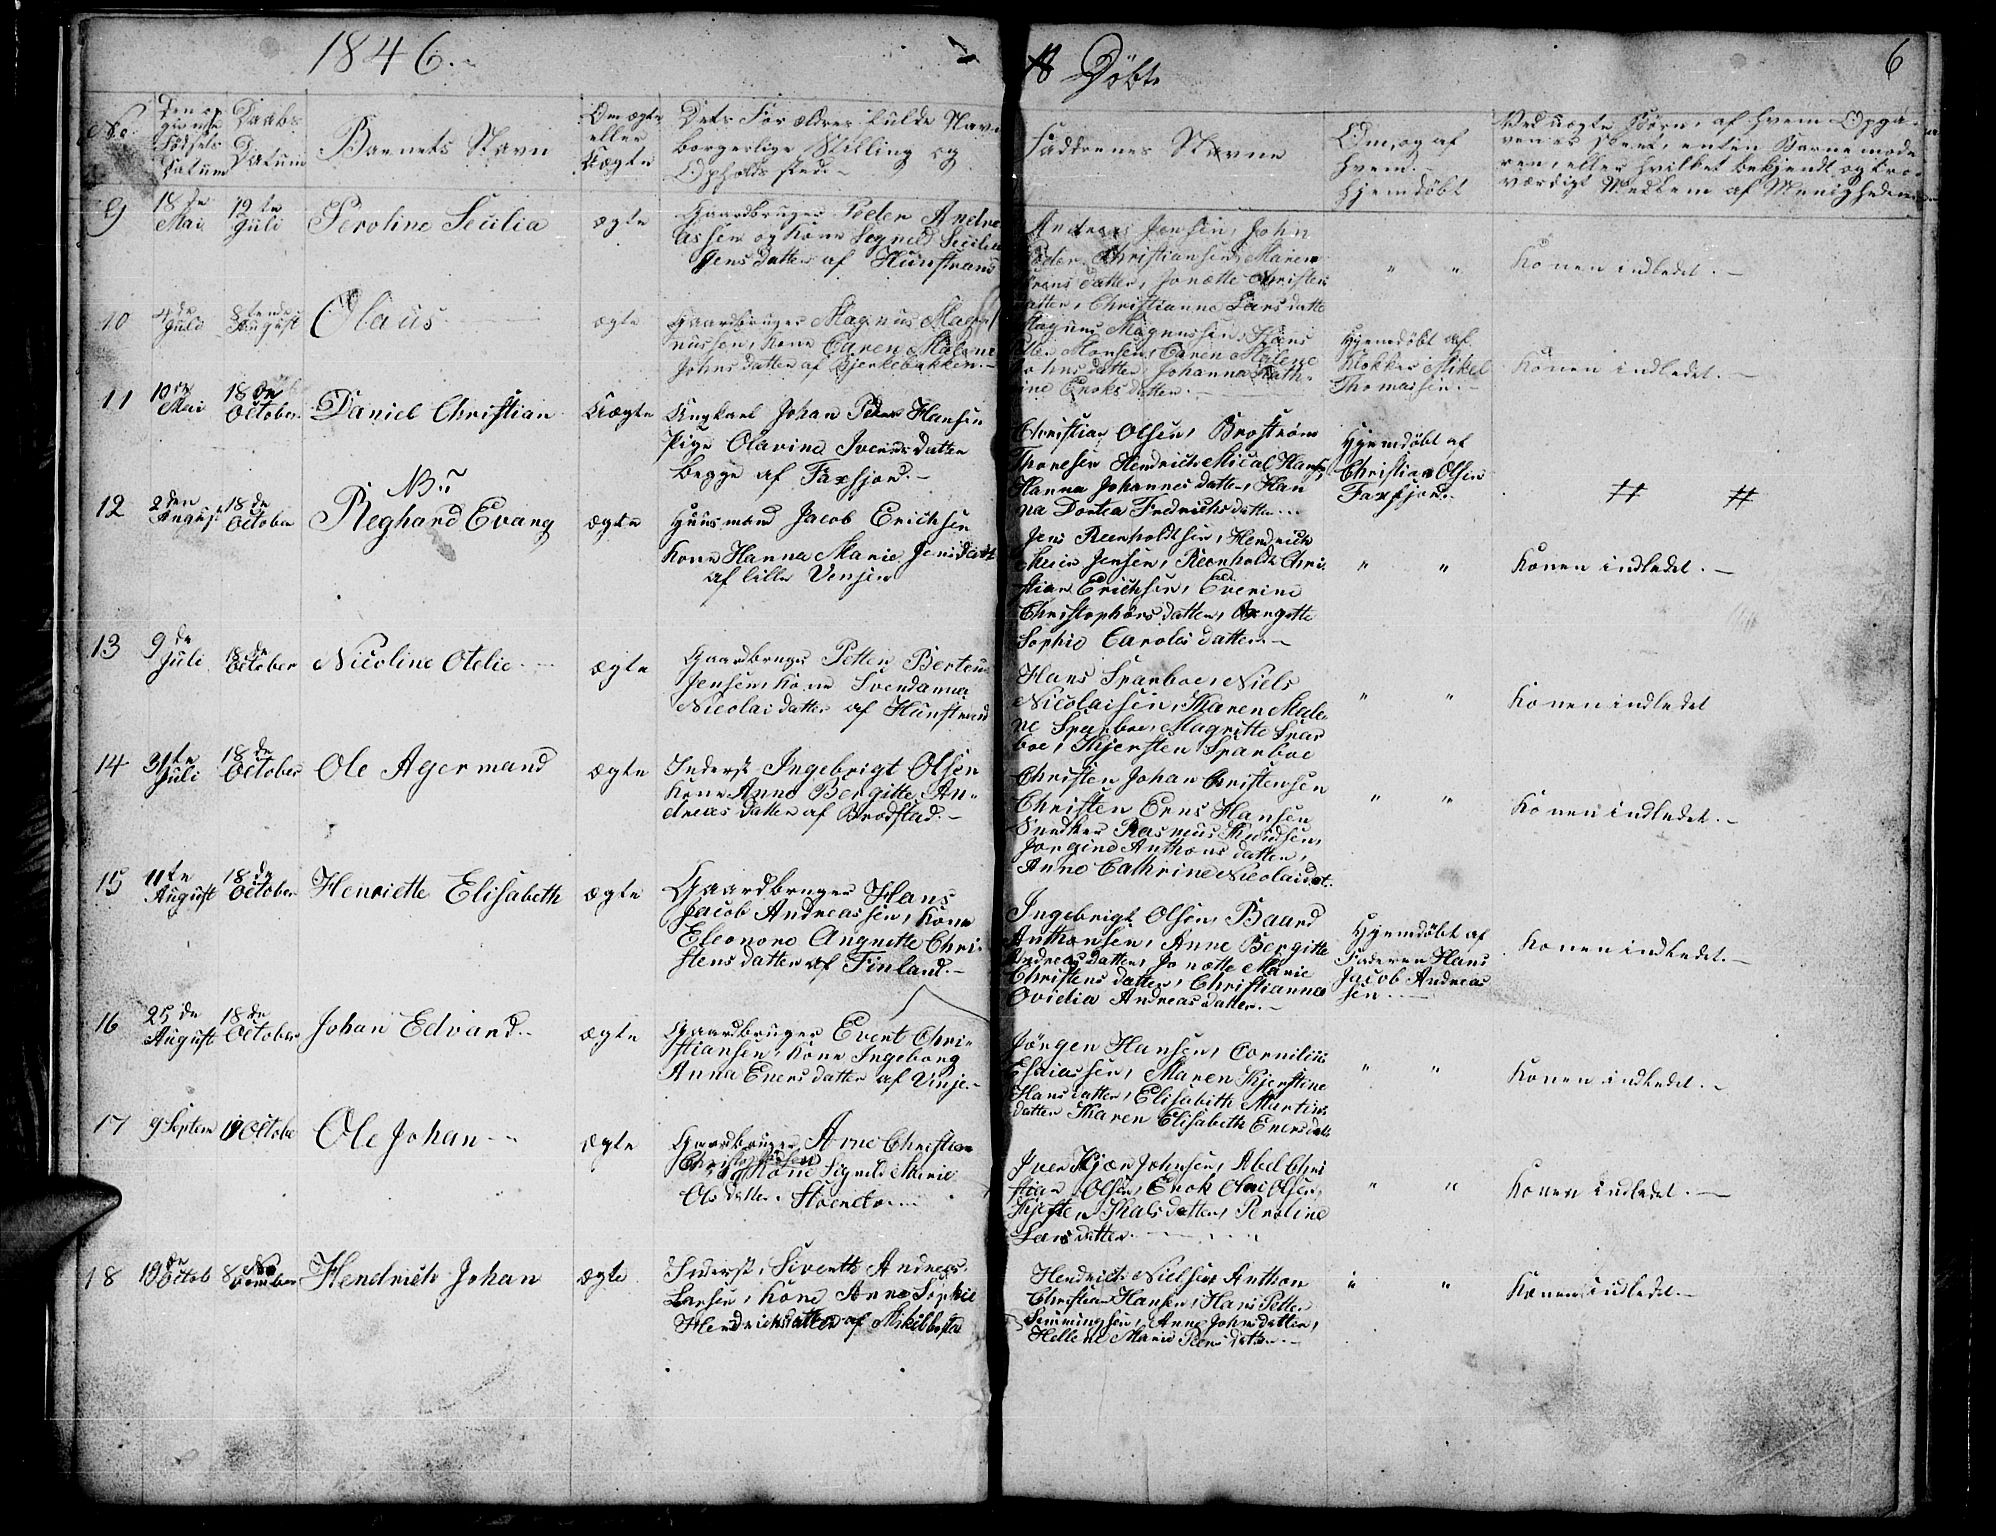 1846.
Döbte
6
No.
Den op
givende
Fødsels
Datum
Daabs
Datum
Barnets Navn
Om ægte
eller
Uægte
Dets Forældres fulde Navn
borgerlige Stilling og
Opholdssted.
Faddrenes Navne
Om, og af
hvem
hjemdøbt
Ved uægte Børn, af hvem Opga-
ven er skeet, enten Barnemode
ren, eller hvilket bekjendt og tro-
værdigt Medlem af Menigheden
9
18de
Mai
19te
Juli
Peroline Secilia
ægte
Gaardbruger Peder Andre
assen og Kone Segnild Secilia
Jensdatter af Hunstrand
Andreas Jensen, John
Peder Christiansen, Maren
Jensdatter, Jonætte Christens
datter, Christianne Larsdatter
" "
Konen indledet.-
10
4de
Juli
8tende
August
Olaus
ægte
Gaardbruger Magnus Mag
nussen, Kone Caren Malene
Johnsdatter af Bjerkebakken.-
Magnus Magnussen, Hans
Peter Monsen, Caren Malene
Johnsdatter, Johanna Kath-
rine Enoksdatter.-
Hjemdøbt af
Klokker Mikel
Thomassen.-
Konen indledet.-
11
10de
Mai
18de
October
Daniel Christian
Uægte
Ungkarl Johan Peder Hansen
Pige Olavina Iversdatter
begge af Faxfjord.-
Christian Olsen, Broström
Thoresen Hendrich Mical Hansen,
Hanna Johannesdatter, Han
na Dortea Fredrichsdatter..
Hjemdøbt af
Christian Olsen
Faxfjord.
# #
12
2den
August
18de
October
NB.
Reghard Evang
ægte
Huusmand Jacob Erichsen
Kone Hanna Marie Jensdatt
af lille Vinjen
Jens Reenholdtsen, Hendrich
Meier Jensen, Reenholdt Chri-
stian Erichsen, Everine
Christophersdatter, Bergitte
Sophie Carolesdatter.-
" "
Konen indledet.-
13
9de
Juli
18de
October
Nicoline Otelie
ægte
Gaardbruger Petter Berteus
Jensen, Kone Svendanna
Nicolaidatter af Hunstrand
Hans Sparboe, Niels
Nicolaisen, Karen Male-
ne Sparboe, Magritte Spar
boe, Kjersten Sparboe
" "
Konen indledet
14
31te
Juli
18de
October
Ole Agermand
ægte
Inderst Ingebrigt Olsen
Kone Anne Bergitte An-
dreasdatter af Brodstad.-
Christen Johan Christensen
Christen Erns Hansen
Snedker Rasmus Knudsen,
Jorgine Anthonsdatter,
Anne Cathrine Nicolaidat.
" "
Konen indledet.-
15
11te
August
18de
October
Henriette Elisabeth
ægte
Gaardbruger Hans
Jacob Andreassen, Kone
Eleonore Angnette Chri-
stensdatter af Finland.-
Ingebrigt Olsen, Baard
Anthonsen, Anne Bergitte
Andreasdatter, Jonætte Marie
Christensdatter, Christianna
Ovidia Andreasdatter.-
Hjemdøbt af
Faderen Hans
Jacob Andreas
sen.-
Konen indledet.-
16
25de
August
18de
October
Johan Edvard.
ægte
Gaardbruger Evert Chri-
stiansen, Kone Ingeborg
Anna Enersdatter af Vinje.-
Jörgen Hansen, Cornilius
Elaiassen, Maren Kjerstine
Hansdatter, Elisabeth Martins
datter Karen Elisabeth Enersdat
" "
Konen indledet.-
17
9 Septem
19 Octobe
Ole Johan
ægte
Gaardbruger Arne Christian
Christophersen
Kone Signild Marie
Olsdatter
Iver Kjær Johnsen, Abel Chri
stian Olsen, Enok Olai Olsen,
Kjersten Kalsdatter, Peroline
Larsdatter.
" "
Konen indledet.-
18
19de
Octob
8 No
vember
Hendrich Johan
ægte
Inderst, Siverth Andreas
Larsen, Kone Anne Sophie
Hendrichsdatter af Skibbstad
Hendrich Nielsen Anthon
Christian Hansen, Hans Petter
Simmingsen, Anne Johnsdatter,
Hellene Marie Peersdatter.-
" "
Konen indledet.-